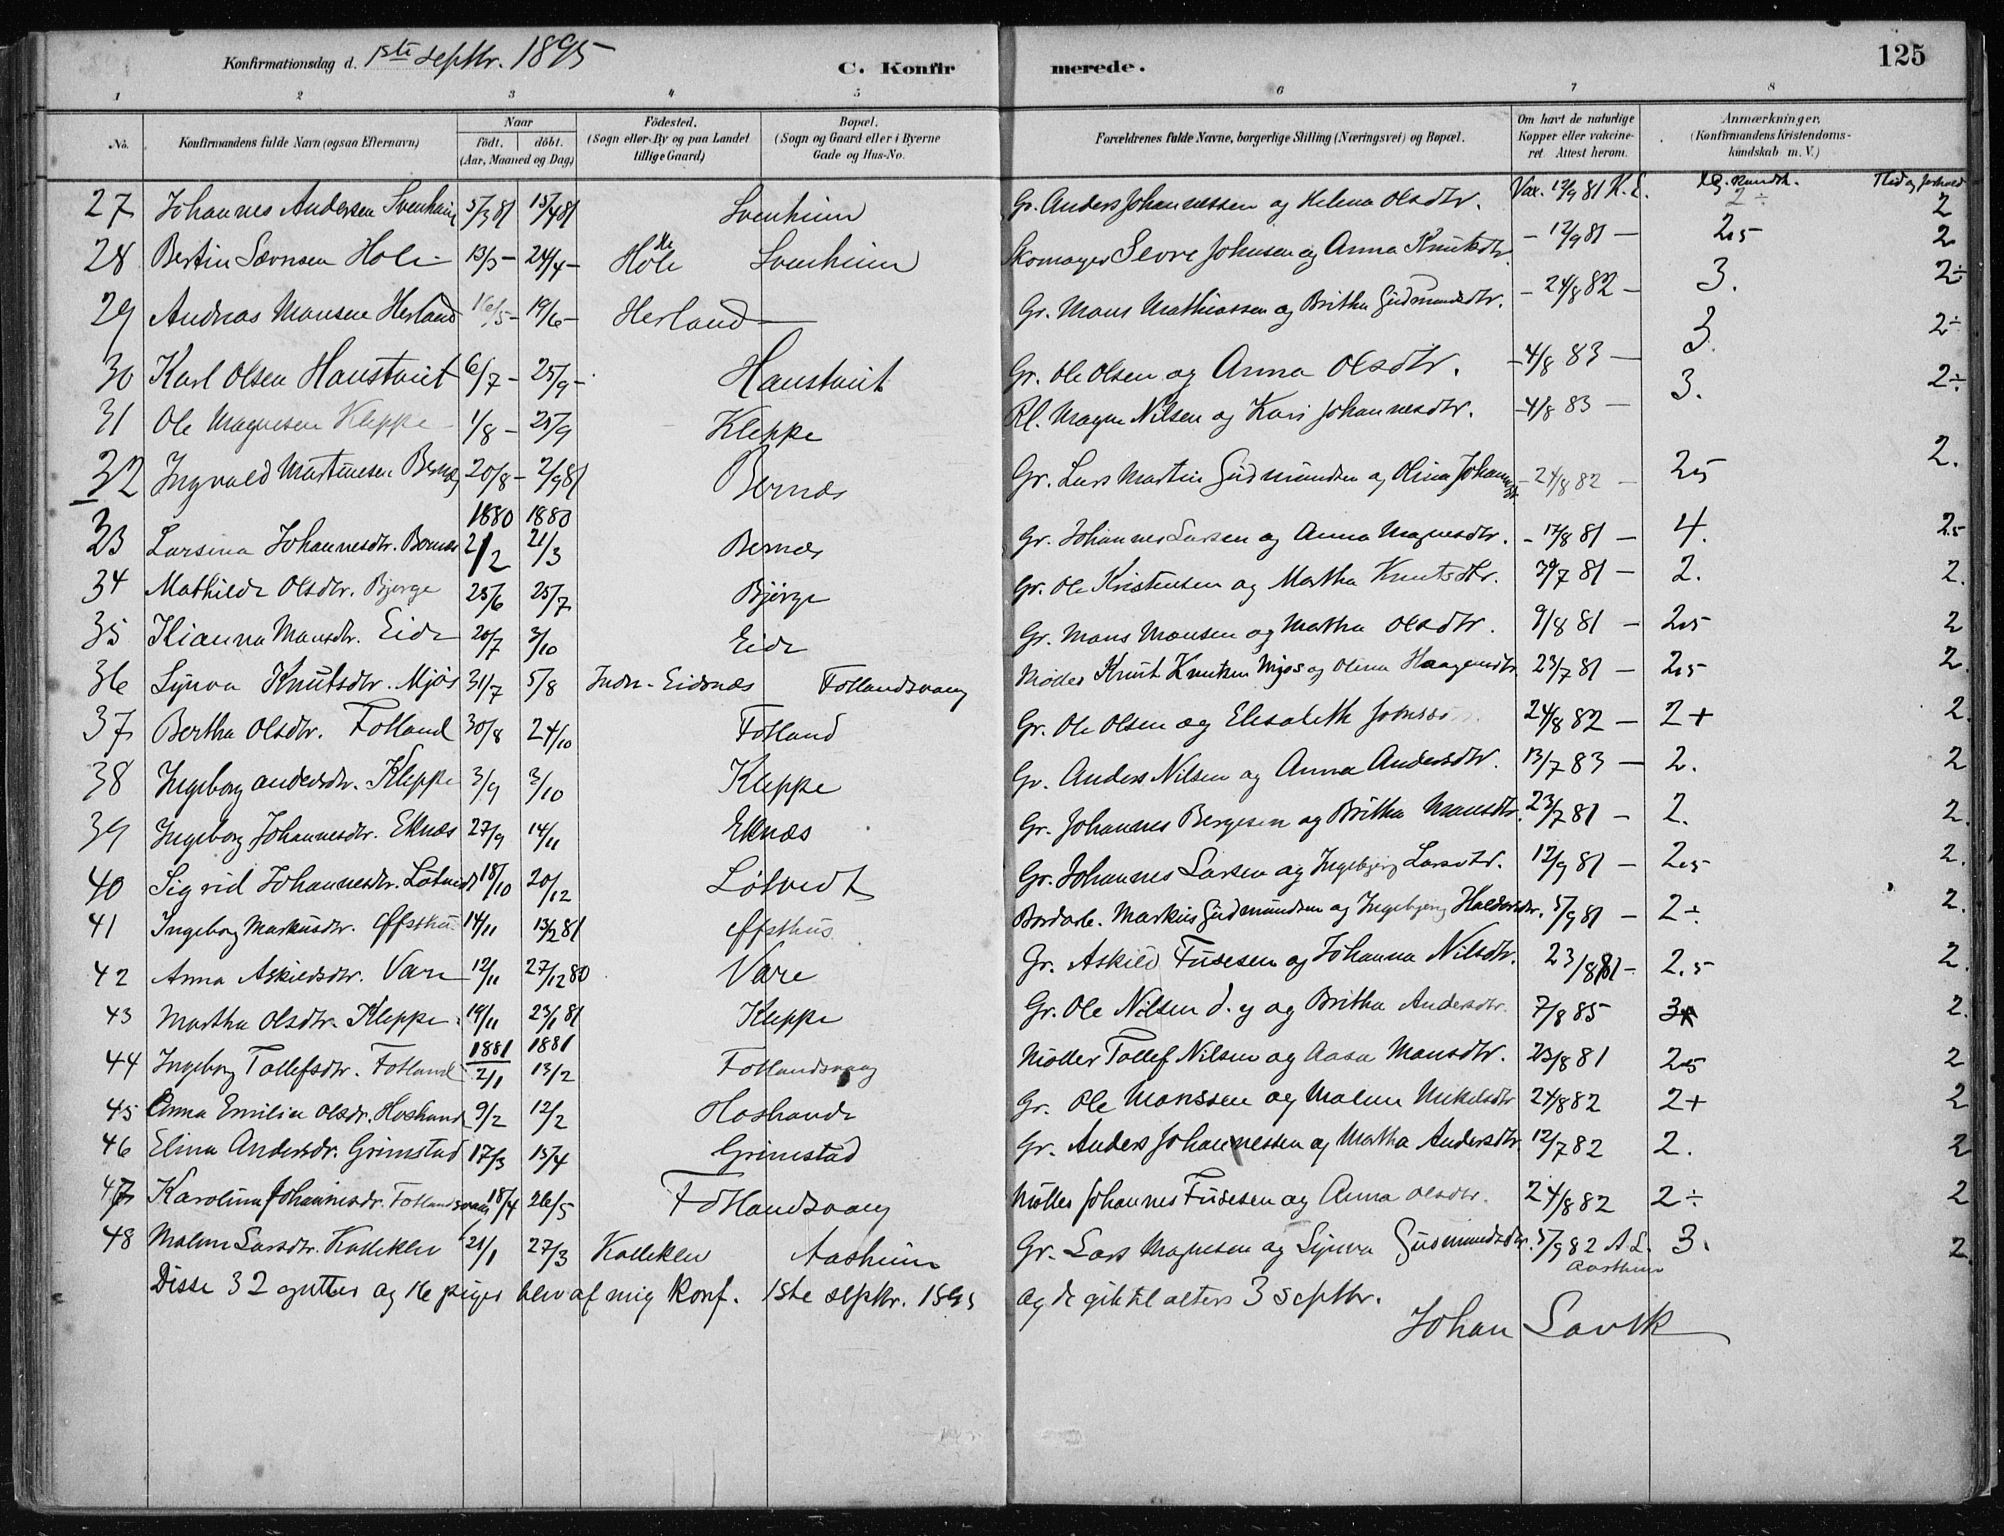 Konfirmationsdag d. 1ste septbr. 1895 C. Konfirmerede. 125
1 2 3 4 5 6 7 8
No. Konfirmandens fulde Navn (ogsaa Efternavn) Naar födt. döbt. (Aar, Maaned og Dag) Födested. (Sogn eller By og paa Landet tillige Gaard) Bopæl. (Sogn og Gaard eller i Byerne Gade og Hus-No. Forældrenes fulde Navne, borgerlige Stilling (Næringsvei) og Bopæl. Om havt de naturlige Kopper eller vakcineret. Attest herom. Anmærkninger. (Konfirmandens Kristendomskundskab m. V.)
kundsk. Flid og forhold
27 Johannes Andersen Svenheim 5/3 81 15/4 81 Svenheim Gr. Anders Johannessen og Helena Olsdtr. Vax. 12/9 81 K. L. 2÷ 2
28 Bertin Sævrsen Hole 13/3 - 24/4 - Hole Svenheim Skomager Sevre Johnsen og Anna Knutsdtr. - 12/9 81 - 2.5 2
29 Andreas Monsen Herland 16/5 - 19/6 - Herland Gr. Mons Mathiassen og Britha Gudmundsdtr. - 24/8 82 - 3. 2÷
30 Karl Olsen Haustveit 6/7 - 25/9 - Haustveit Gr. Ole Olsen og Anna Olsdtr. - 4/8 83 - 3. 2÷
31 Ole Magnesen Kleppe 1/8 - 25/9 Kleppe Rl. Magne Nilsen og Kari Johannesdtr. - 4/8 83 - 3. 2÷
32 Ingvald Martinesen Bernæs 20/8 - 2/9 81 Bernæs Gr. Lars Martin Gudmundsen og Olina Johannsdt. - 24/8 82 - 2.5 2.
1880 1880
33 Larsina Johannesdtr. Bernæs 2/2 21/3 Bernæs Gr. Johannes Larsen og Anna Magnesdtr. - 17/8 81 - 4. 2.5
34 Mathilde Olsdtr. Bjørge 25/6 25/7 Bjørge Gr. Ole Kristensen og Martha Knutsdtr. 30/7 81 - 2. 2.
35 Kianna Monsdtr. Eide 20/7 3/10 Eide Gr. Mons Monsen og Martha Olsdtr. 9/8 81 - 2.5 2
36 Synva Knutsdtr. Mjøs 31/7 5/8 Indre-Eidsnæs Fotlandsvaag Møller Knut Knutsen Mjøs og Olina Haagensdtr. 23/7 81 - 2.5 2.
37 Bertha Olsdtr. Fotland 30/8 24/10 Fotland Gr. Ole Olsen og Elisabeth 24/8 82 - 2+ 2.
38 Ingeborg Andersdtr. Kleppe 3/9 3/10 Kleppe Gr. Anders Nilsen og Anna Andersdtr. 13/7 83 - 2. 2
39 Ingeborg Johannesdtr. Eknæs 27/9 14/11 Eknæs Gr. Johannes Bergesen og Britha Monsdtr. 23/7 81 - 2. 2.
40 Sigrid Johannesdtr. Løtvedt 18/10 20/12 Løtvedt Gr. Johannes Larsen og Ingebjørg Larsdtr. 12/9 81 - 2.5 2.
41 Ingeborg Markusdtr. Effsthus 14/11 13/2 81 Effsthus Bordarb. Markus Gudmundsen og Ingebjørg Haldorsdtr. 5/9 81 - 2÷ 2.
42 Anna Askildsdtr. Vare 12/11 27/12 80 Vare Gr. Askild Fusesen og Johanna Nilsdtr. 23/8 81 - 2.5 2.
43 Martha Olsdtr. Kleppe 19/11 23/1 81 Kleppe Gr. Ole Nilsen d. y og Britha Andersdtr. 7/8 85 3 2.
1881 1881
44 Ingeborg Tollefsdtr. Fotland 2/1 13/2 Fotlandsvaag Møller Tollef Nilsen og Aasa Monsdtr. 23/8 81 2.5 2
45 Anna Emilia Olsdr. Hoshaude 9/2 12/2 Hoshaude Gr. Ole Monssen og Malene Mikelsdtr 24/8 82 2+ 2
46 Elina Andersdr. Grimstad 17/3 15/4 Grimstad Gr. Anders Johannessen og Martha Andersdtr. 12/7 82 2. 2
47 Karolina Johannesdr. Fotlandsvaag 18/4 26/5 Fotlandsvaag Møller Johannes Fusesen og Anna Olsdtr. 24/8 82 2÷ 2
48 Malene Larsdtr. Kalleklev 21/1 27/3 Kalleklev Aasheim Gr. Lars Magnesen og Synva Gudmundsdtr. 5/9 82 A. L. 3. 2.
Disse 32 gutter og 16 piger blev af mig konf. 1ste septbr. 1895 og de gik til alters 3 septbr.
Johan Lavik